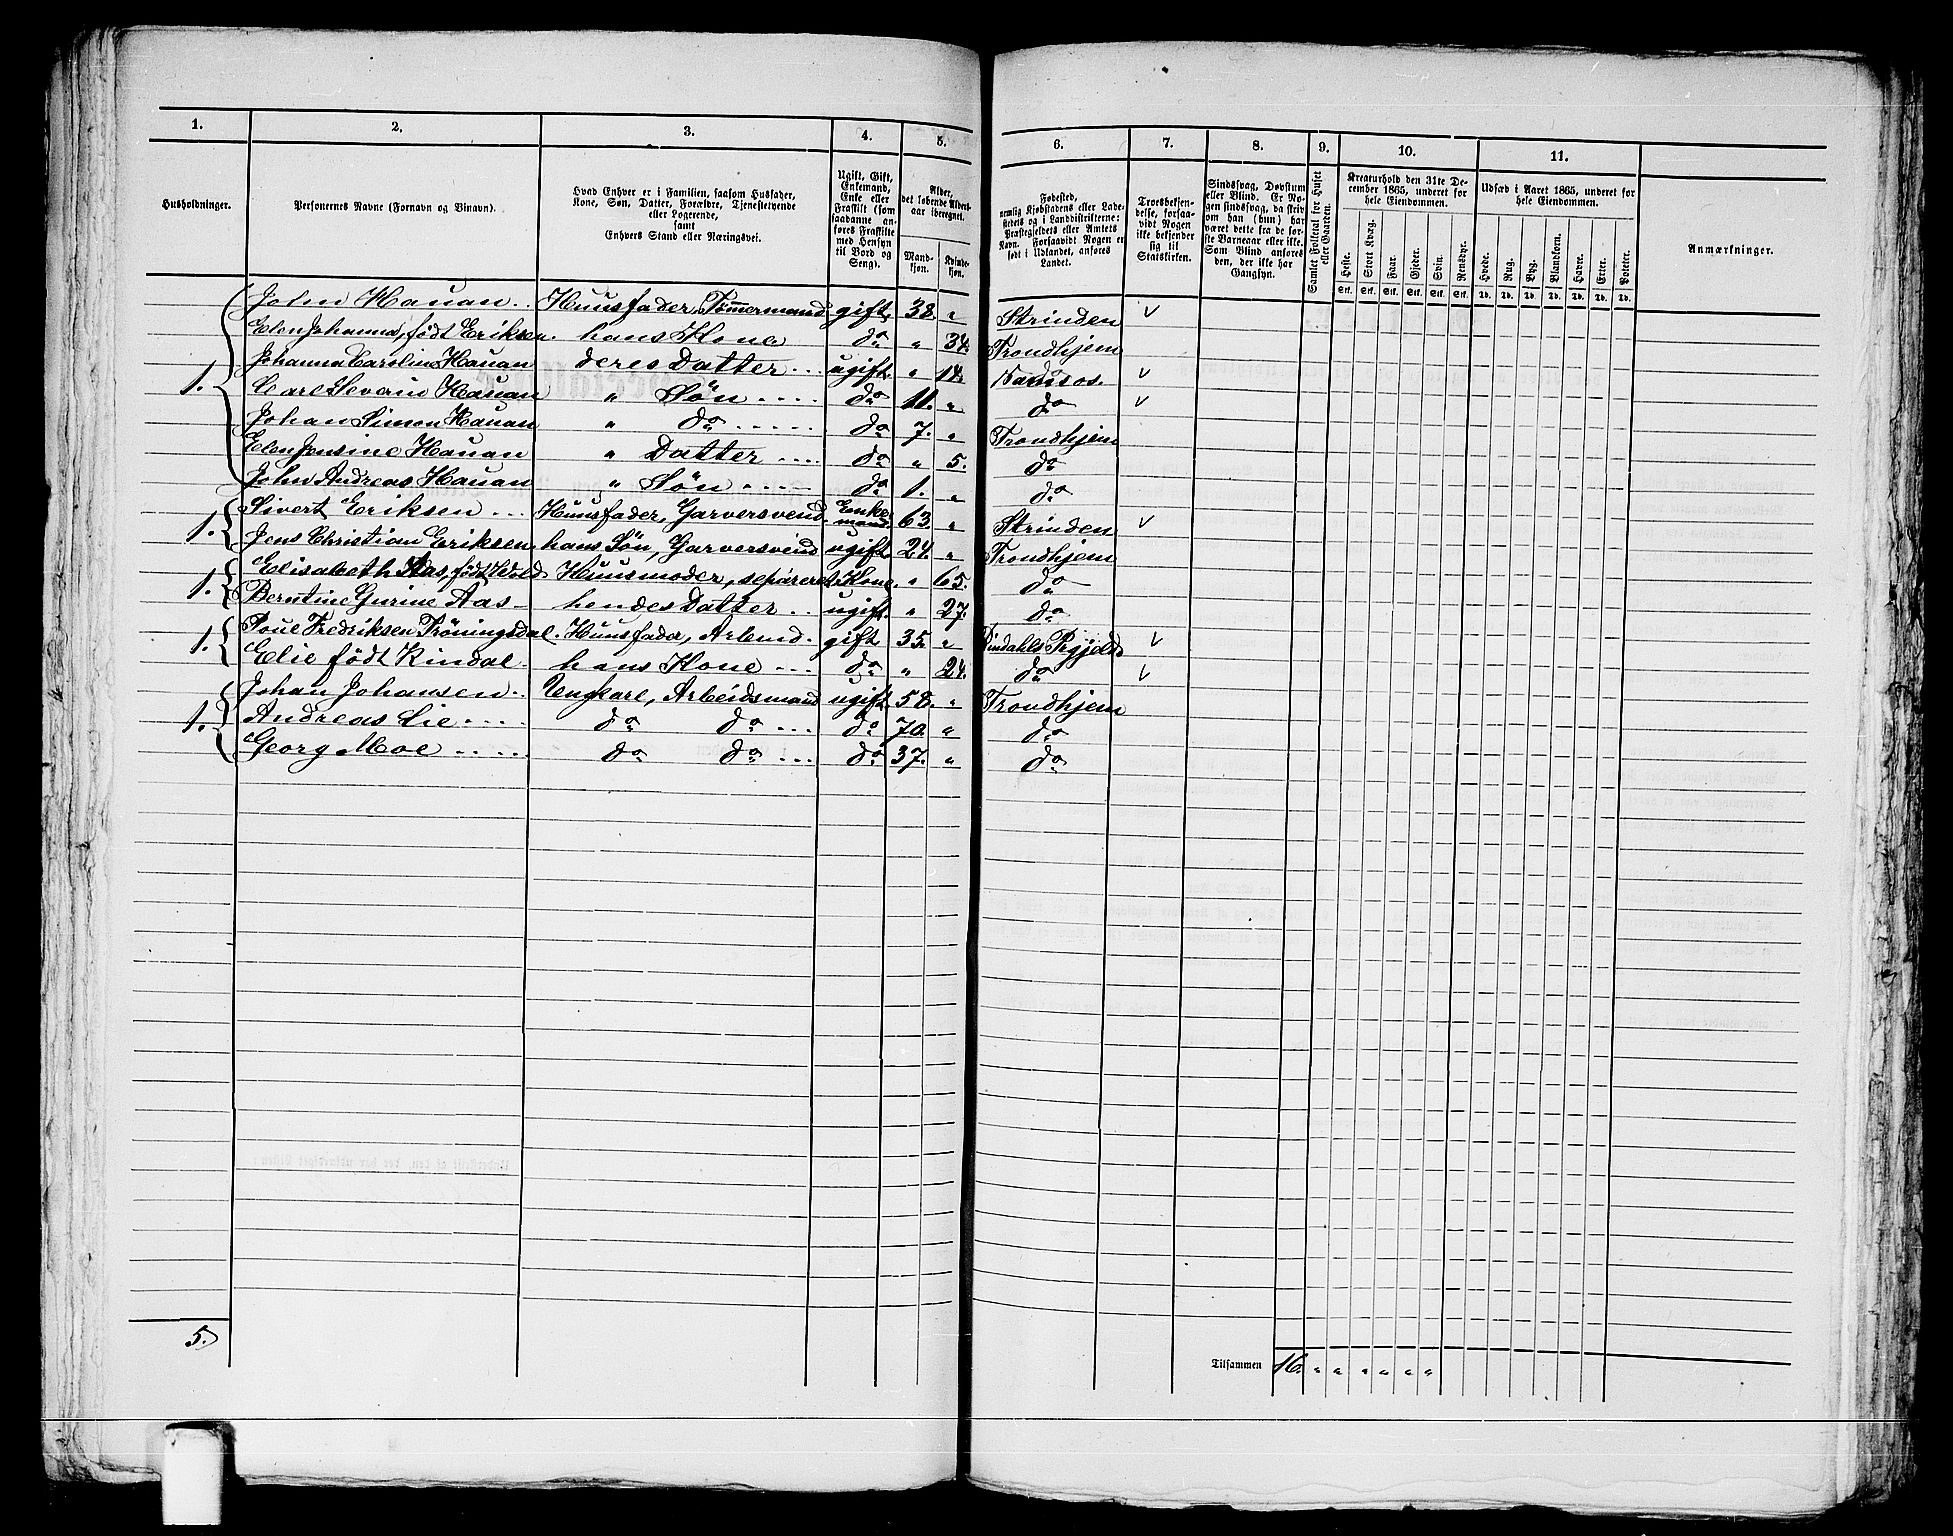 1. 2. 3. 4. 5. 6. 7. 8. 9. 10. 11.
Husholdninger.
Personernes Navne (Fornavn og Vinavn).
Hvad Enhver er i Familien, saasom Husfader,
Kone, Søn, Datter, Forældre, Tjenestetyende
eller Logerende,
samt
Enhvers Stand eller Næringsvei.
Ugift, Gift,
Enkemand,
Enke eller
Fraskilt (som
saadanne an-
føres Fraskilte
med Hensyn
til Bord og
Seng).
Alder,
det løbende Alders-
aar iberegnet.
Mand-
kjøn.
Kvinde-
kjøn.
Fødested,
nemlig Kjøbstadens eller Lade-
stedets og i Landdistrikterne:
Præstegjeldets eller Amtets
Navn. Forsaavidt Nogen er
født i Udlandet, anføres
Landet.
Troesbekjen-
delse, forsaa-
vidt Nogen
ikke bekjender
sig til
Statskirken.
Sindssvag, Døvstum
eller Blind. Er No-
gen sindssvag, da skriv
om han (hun) har
været dette fra de før-
ste Barneaar eller ikke.
Som Blind anføres
den, der ikke har
Gangsyn.
Samlet Folketal for Huset
eller Gaarden.
Kreaturhold den 31te De-
cember 1865, underet for
hele Eiendommen.
Heste. Stort Kvæg. Faar. Gjeder. Svin. Rensdyr.
Stk. Stk. Stk. Stk. Stk. Stk.
Udsæd i Aaret 1865, underet for
hele Eiendommen.
Hvede. Rug. Byg. Blandkorn. Havre. Erter. Poteter.
Td. Td. Td. Td. Td. Td. Td.
Anmærkninger.
John Hauan .. Huusfader, Tømmermand gift. 38. " Strinden √
Elen Johanna, født Eriksen. hans Kone do " 34. Trondhjem
Johanna Caroline Hauan deres Datter ... ugift. " 14. Namsos. √
1. Carl Severin Hauan " Søn .... do 11. " do √
Johan Simon Hauan " do ..... do 7. " Trondhjem
Elen Jensine Hauan " Datter .... do " 5. do
John Andreas Hauan " Søn .... do 1. " do
Sivert Eriksen ... Huusfader, Garversvend. Enke-mand. 63. " Strinden √
1. Jens Christian Eriksen. hans Søn, Garversvend ugift. 24. " Trondhjem
1. Elisabeth Aas, født Wold Huusmoder, separeret Kone. " 65. do
Berntine Gurine Aas - hendes Datter .. ugift. " 27. do
1. Poul Fredriksen Trøningsdal. Huusfader, Arbmd. gift 35. " Rindahls Prgjeld. √
Elie født Rindal. hans Kone ... do " 24. do √
Johan Johansen .. Ungkarl, Arbeidsmand ugift. 58. " Trondhjem
1. Andreas Lie .... do do ... do 70. " do
Georg Moe ..... do do ... do 37. " do
5.
Tilsammen 16. " " " " " "